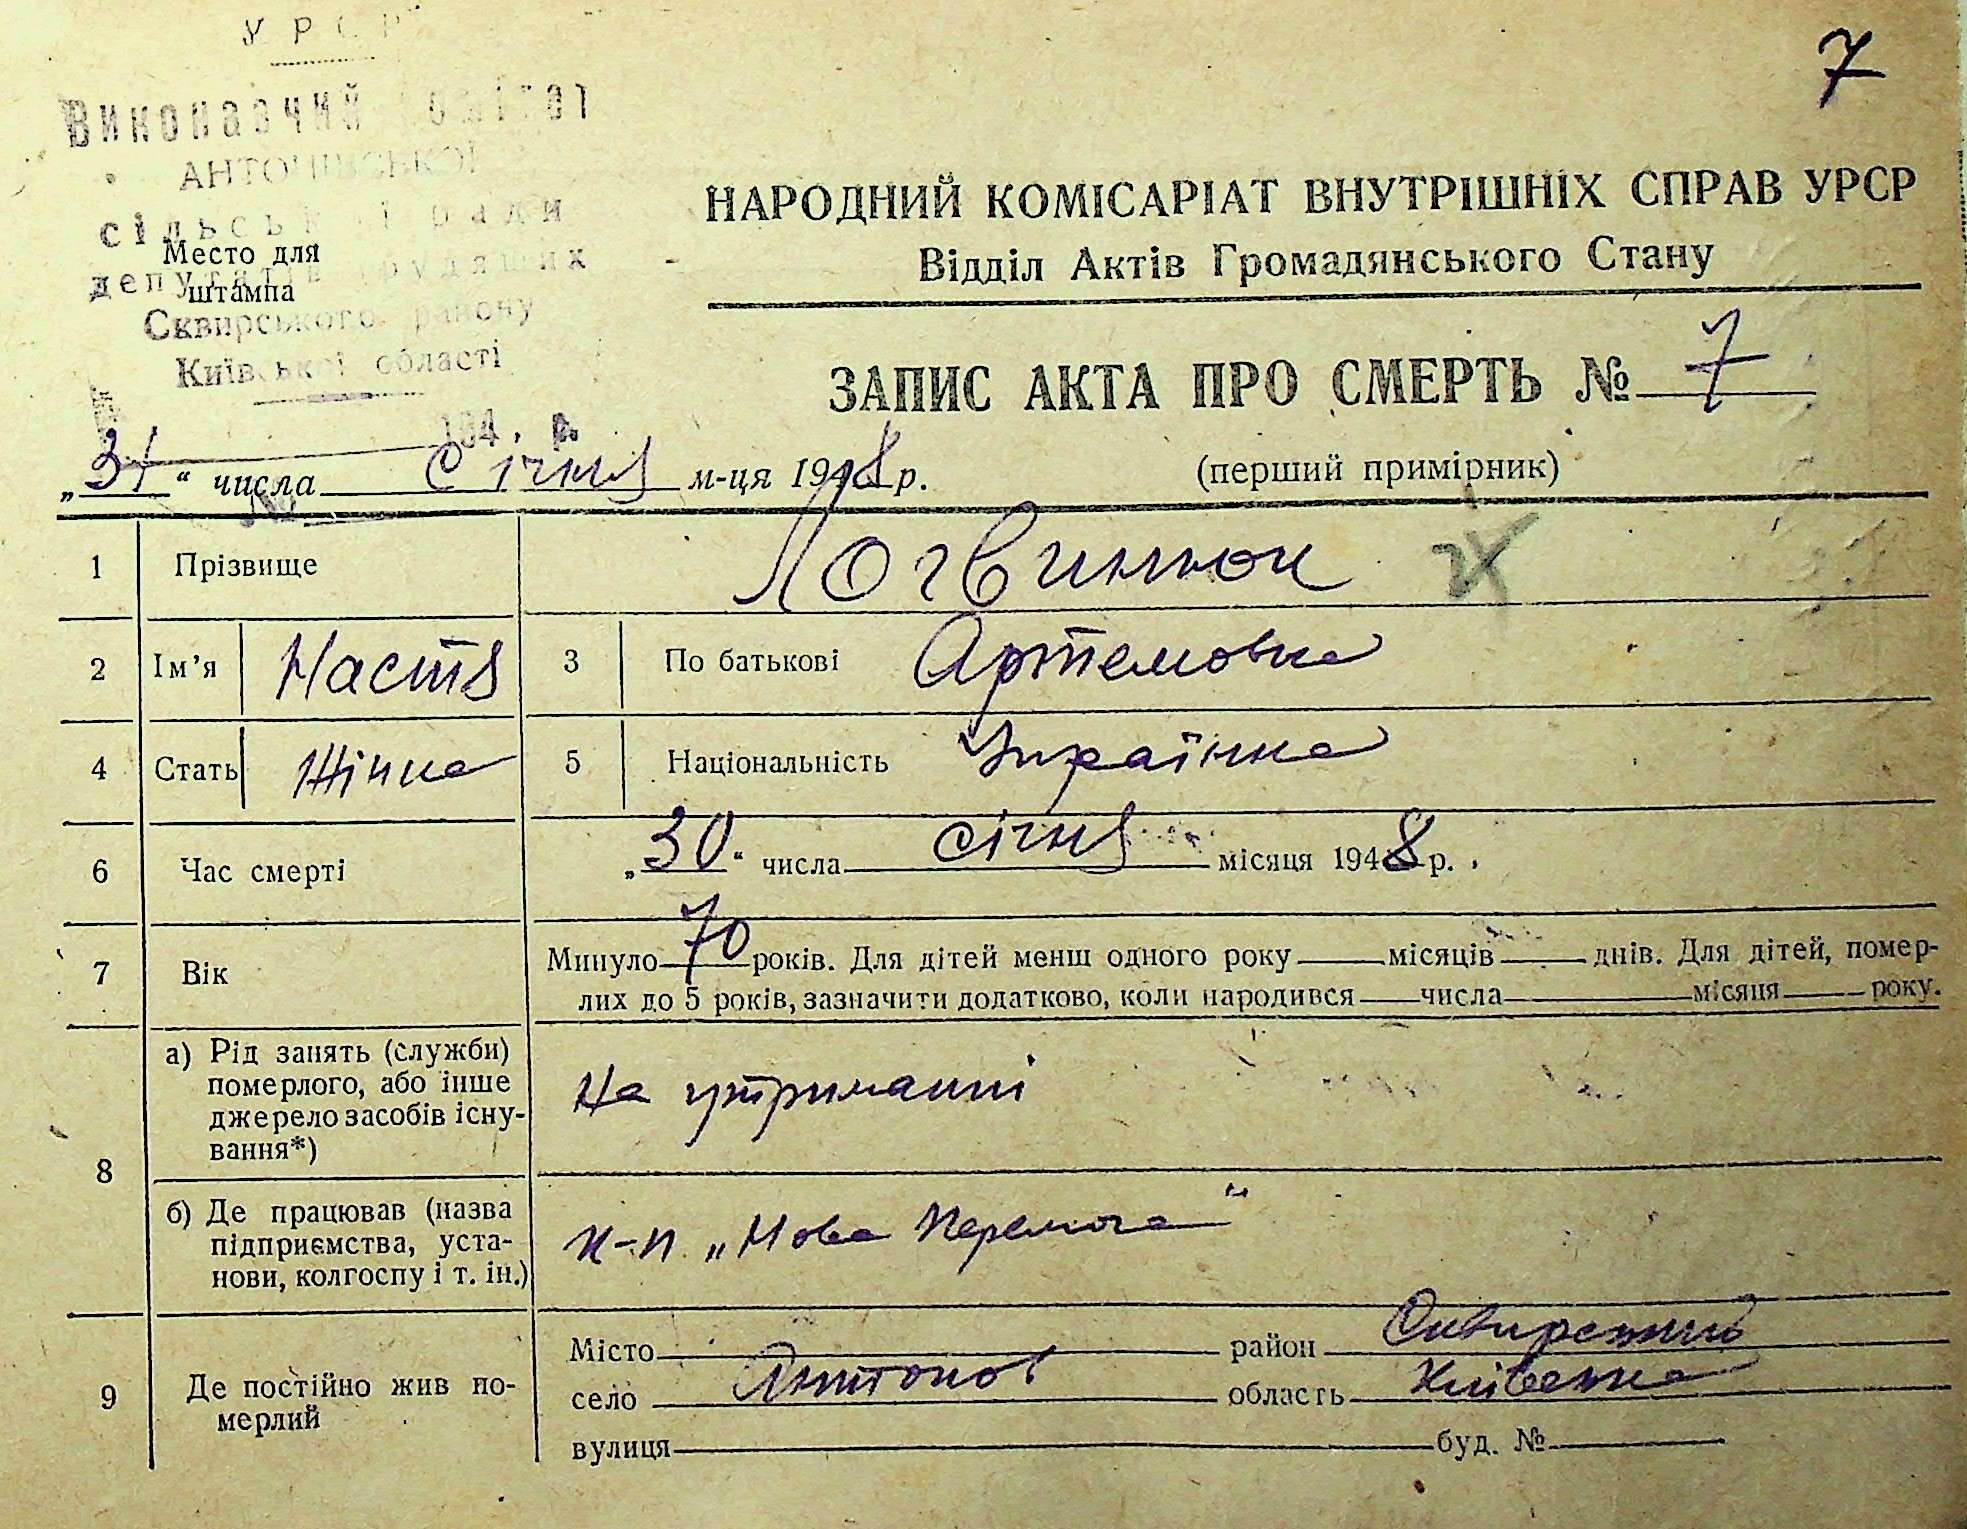 УРСР
7
Виконавчий комітет
АНТОНІВСЬКОЇ
сільської ради
Место для
депутатів трудящих
штампа
Сквирського району
Київської області
194 р.
№
НАРОДНИЙ КОМІСАРІАТ ВНУТРІШНІХ СПРАВ УРСР
Відділ Актів Громадянського Стану
ЗАПИС АКТА ПРО СМЕРТЬ № 7
„31“ числа січня м-ця 1948 р. (перший примірник)
1 Прізвище Логвинюк
2 Ім’я Настя 3 По батькові Артемовна
4 Стать Жінка 5 Національність Українка
6 Час смерті „30“ числа січня місяця 1948 р.
7 Вік Минуло 70 років. Для дітей менш одного року місяців днів. Для дітей, помер-
лих до 5 років, зазначити додатково, коли народився числа місяця року.
8 а) Рід занять (служби)
померлого, або інше
джерело засобів існу-
вання*)
На утриманні
б) Де працював (назва
підприємства, уста-
нови, колгоспу і т. ін.)
к-п „Нова Перемога“
9 Де постійно жив по-
мерлий
Місто район Сквирський
село Антонов область Київська
вулиця буд. №